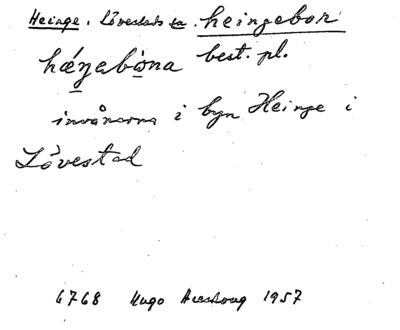 Heinge, Lövestads sn. heingebor
hǽŋabòna best. pl.
invånarna i byn Heinge i
Lövestad
6768 Hugo Areskoug 1957